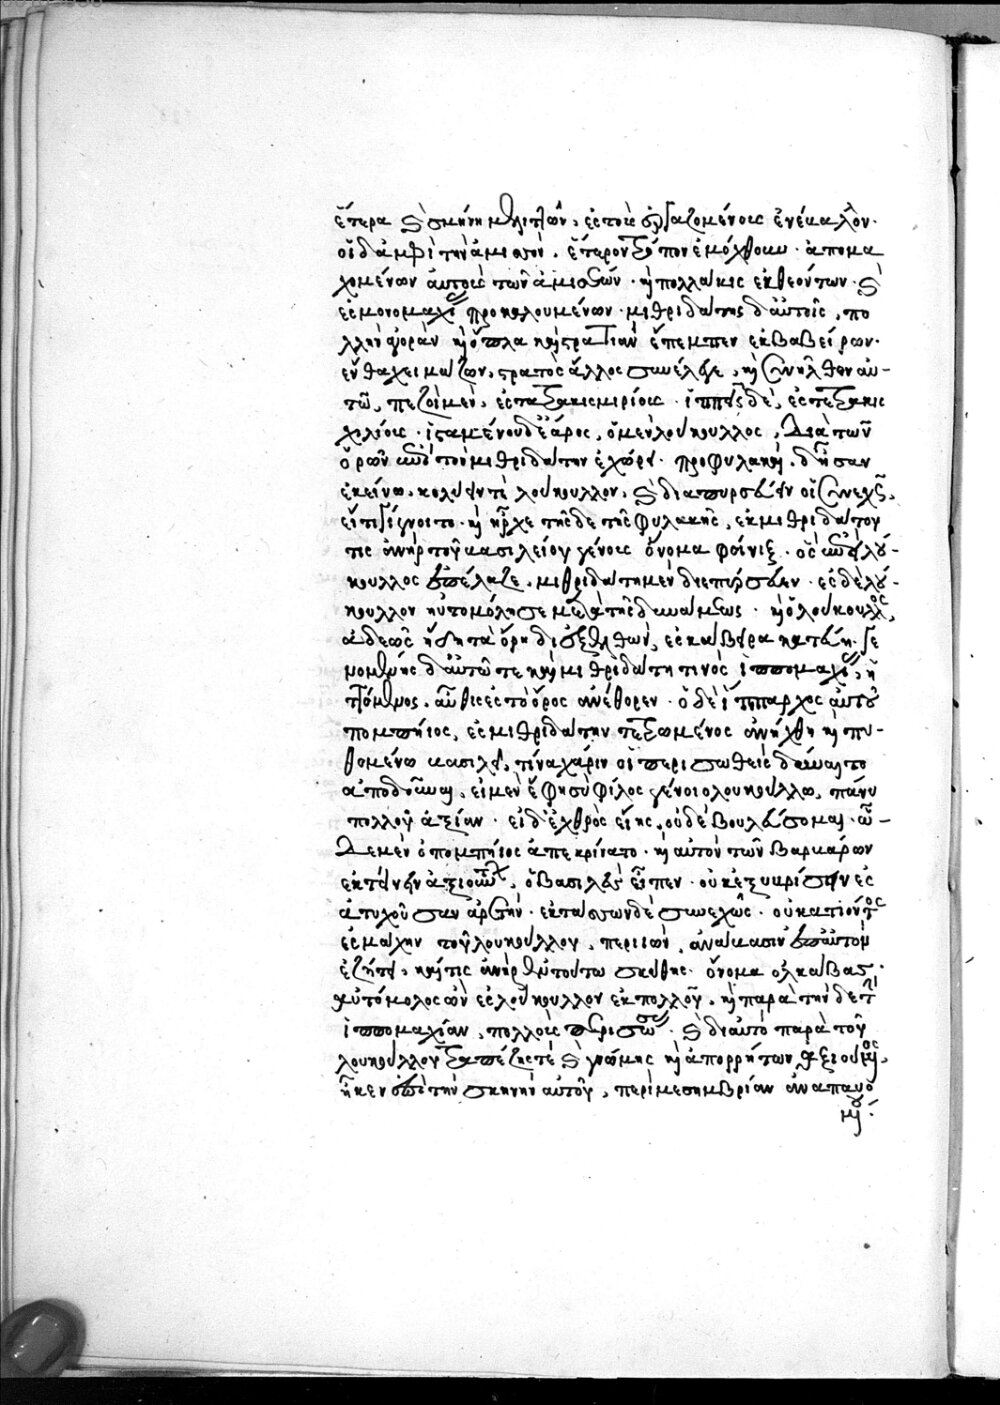 ἕτερα καὶ σμήνη μελιττῶν, ἐς τοὺς ἐργαζομένους ἐνέβαλλον·
οἳ δ' ἀμφὶ τὴν ἀμισὸν, ἕτερον τρόπον ἐμόχθουν· ἀπομα
χομένων αὐτοῖς τῶν ἀμισέων· καὶ πολλάκις ἐκθεόντων· καὶ
ἐς μονομαχίας προκαλουμένων· μιθριδάτης δ' αὐτοῖς, πο
λλὴν ἀγορὰν καὶ ὅπλα καὶ στρατιὰν ἔπεμπεν ἐκ βαβείρων·
ἔνθα χειμάζων, στρατὸς ἄλλος συνέλεγε, καὶ συνῆλθον αὐ-
τῷ, πεζοὶ μὲν, ἐς τετρακισμυρίους· ἱππεῖς δὲ, ἐς τετρακισ
χιλίους· ἱσταμένου δὲ ἔαρος, ὁ μὲν λούκουλλος, διὰ τῶν
ὀρῶν ἐπὶ τὸν μιθριδάτην ἐχώρει· προφυλακαὶ δ' ἦσαν
ἐκείνω, κωλύειν τὲ λούκουλλον, καὶ διαπυρσεύειν οἱ συνεχῶς,
εἴ τι γίγνοιτο· καὶ ἦρχε τῆσδε τῆς φυλακῆς, ἐκ μιθριδάτου
τις ἀνὴρ τοῦ βασιλείου γένους ὄνομα φοίνιξ· ὃς ἐπεὶ λού-
κουλλος ἐπέλαζε, μιθριδάτη μὲν διεπύρσευεν· ἐς δὲ λού-
κουλλον ηὐτομόλησε μετὰ τῆς δυνάμεως· καὶ ὁ λούκουλλος,
ἀδεῶς ἤδη τὰ ὄρη διεξελθὼν, ἐς κάβειρα κατέβη· γε
νομένης δ' αὐτῶ τε καὶ μιθριδάτη τινὸς ἱππομαχίας, ἡ
ττώμενος, αὖθις ἐς τὸ ὄρος ἀνέθορεν· ὁ δὲ ἵππαρχος αὐτοῦ
πομπήιος, ἐς μιθριδάτην τετρωμένος ἀνήχθη καὶ πυ-
θομένω βασιλεῖ, τίνα χάριν οἱ περισωθεὶς δύναιτο
ἀποδοῦναι, εἰ μὲν ἔφη σὺ φίλος γένοιο λουκούλλω, πάνυ
πολλοῦ ἀξίαν· εἰ δ' ἐχθρὸς εἴης, οὐδὲ βουλεύσομαι· ὧ-
δε μὲν ὁ πομπήιος ἀπεκρίνατο· καὶ αὐτὸν τῶν βαρβάρων
ἐκτείνειν ἀξιούντων, ὁ βασιλεὺς εἶπεν· οὐκ ἐξυβρίσειν ἐς
ἀτυχοῦσαν ἀρετήν· ἐκτάσσων δὲ συνεχῶς· οὐ κατιόντος
ἐς μάχην τοῦ λουκούλλου, περιιὼν, ἀνάβασιν ἐπ' αὐτὸν
ἐζήτει, καί τις ἀνὴρ ἐν τούτω σκύθης· ὄνομα ὀλκάβας·
αὐτόμολος ὢν ἐς λούκουλλον ἐκ πολλοῦ, καὶ παρὰ τὴν δε τὴν
ἱππομαχίαν, πολλοὺς περισώσας· καὶ δι' αὐτὸ παρὰ τοῦ
λουκούλλου τραπέζης τὲ καὶ γνώμης καὶ ἀπορρήτων ἀξιούμενος,
ἧκεν ἐπὶ τὴν σκηνὴν αὐτοῦ, περὶ μεσημβρίαν ἀναπαυο
μένου·